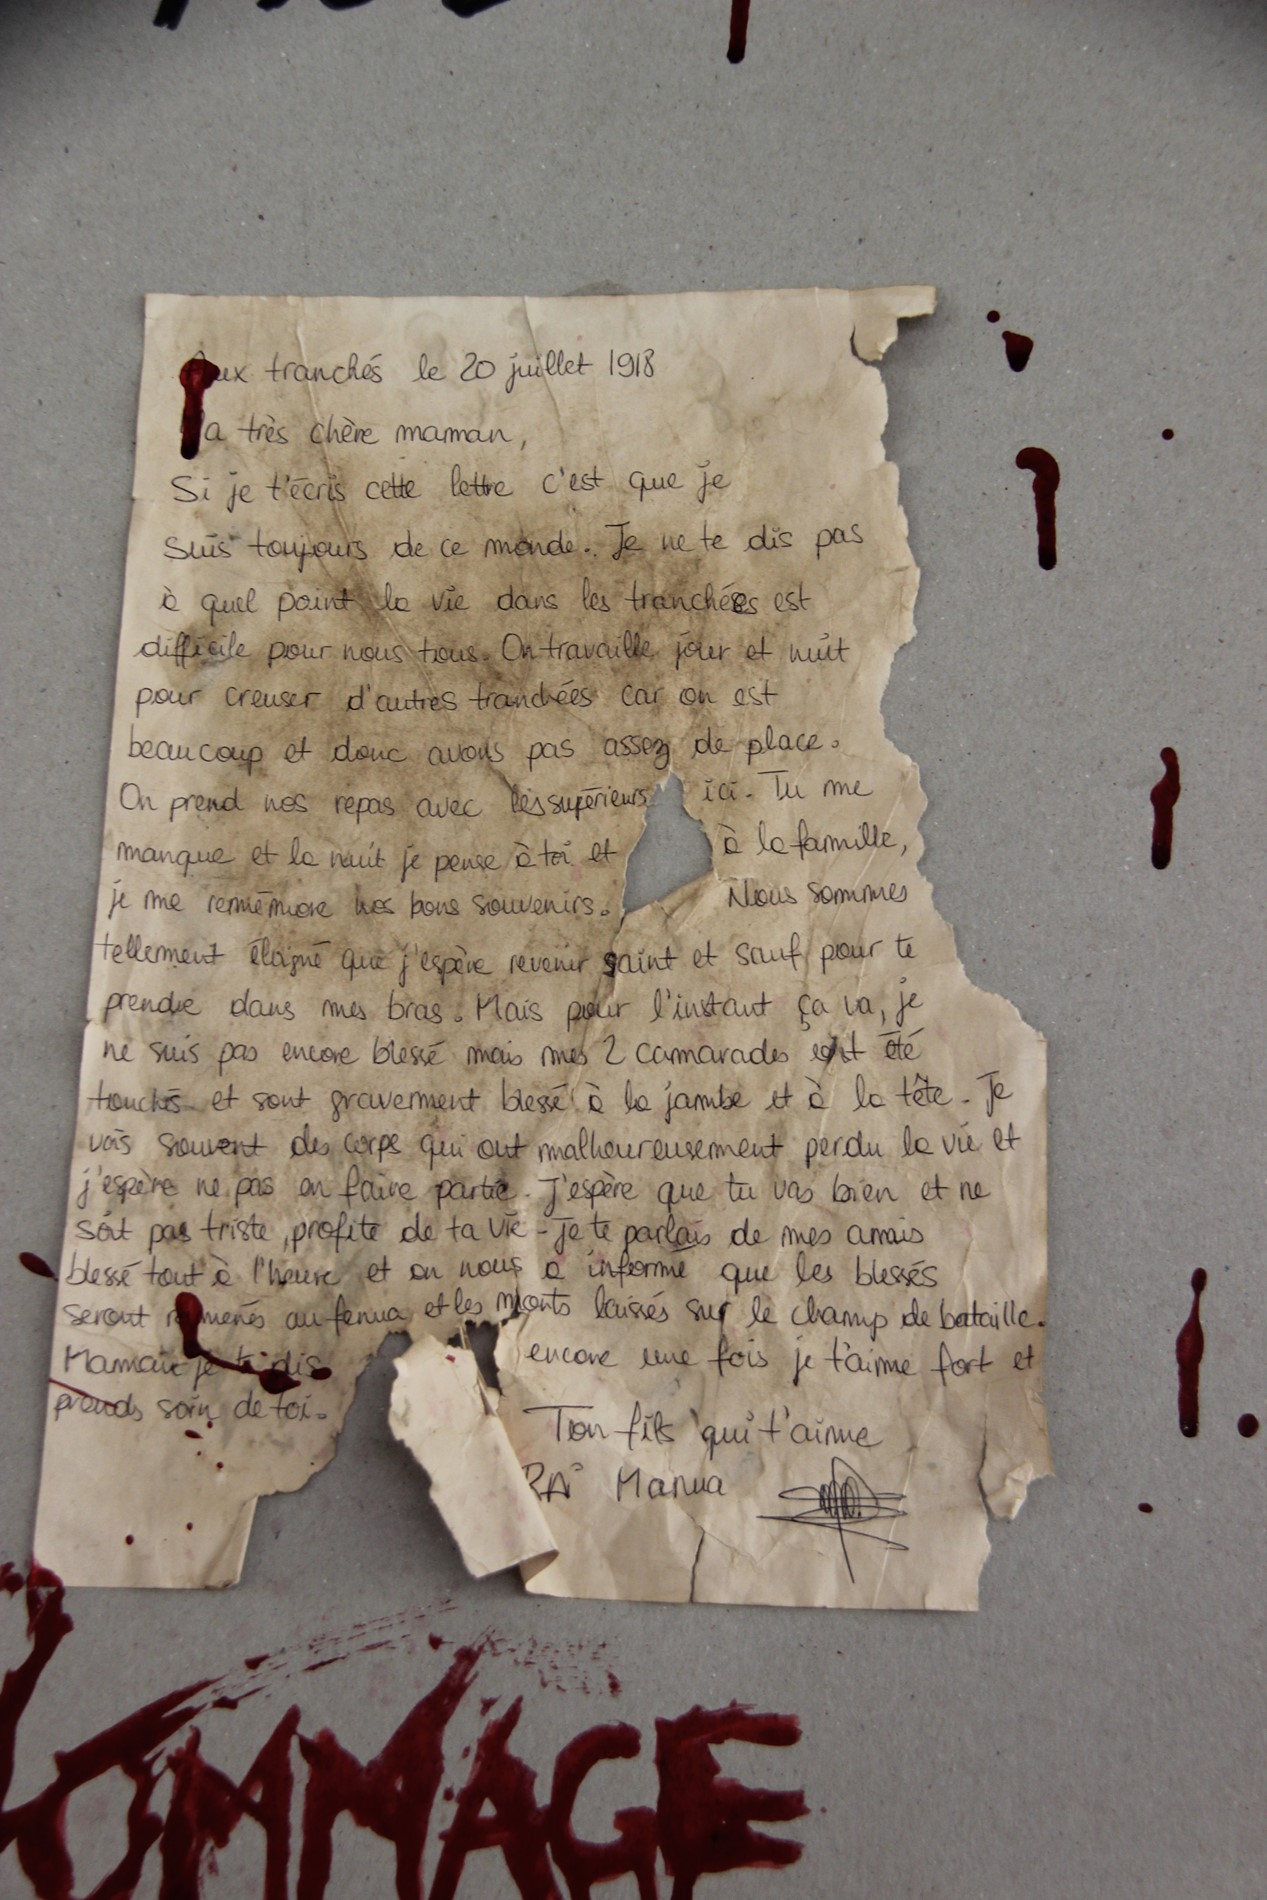 Aux tranchés le 20 juillet 1918
Ma très chère maman,
Si je t'écris cette lettre c'est que je
suis toujours de ce monde. Je ne te dis pas
à quel point la vie dans les tranchées est
difficile pour nous tous. On travaille jour et nuit
pour creuser d'autres tranchées car on est
beaucoup et donc avons pas assez de place.
On prend nos repas avec les supérieurs ici. Tu me
manque et la nuit je pense à toi et à la famille,
je me remémore nos bons souvenirs. Nous sommes
tellement éloigné que j'espère revenir saint et sauf pour te
prendre dans mes bras. Mais pour l'instant ça va, je
ne suis pas encore blessé mais mes 2 camarades ont été
touchés et sont gravement blessé à la jambe et à la tête. Je
vois souvent des corps qui ont malheureusement perdu la vie et
j'espère ne pas en faire partie. J'espère que tu vas bien et ne
soit pas triste, profite de ta vie - je te parlais de mes amis
blessé tout à l'heure et on nous a informé que les blessés
seront ramenés au fenua et les morts laissés sur le champ de bataille.
Maman je te dis encore une fois je t'aime fort et
prends soin de toi.
Ton fils qui t'aime
RA' Manua
HOMMAGE